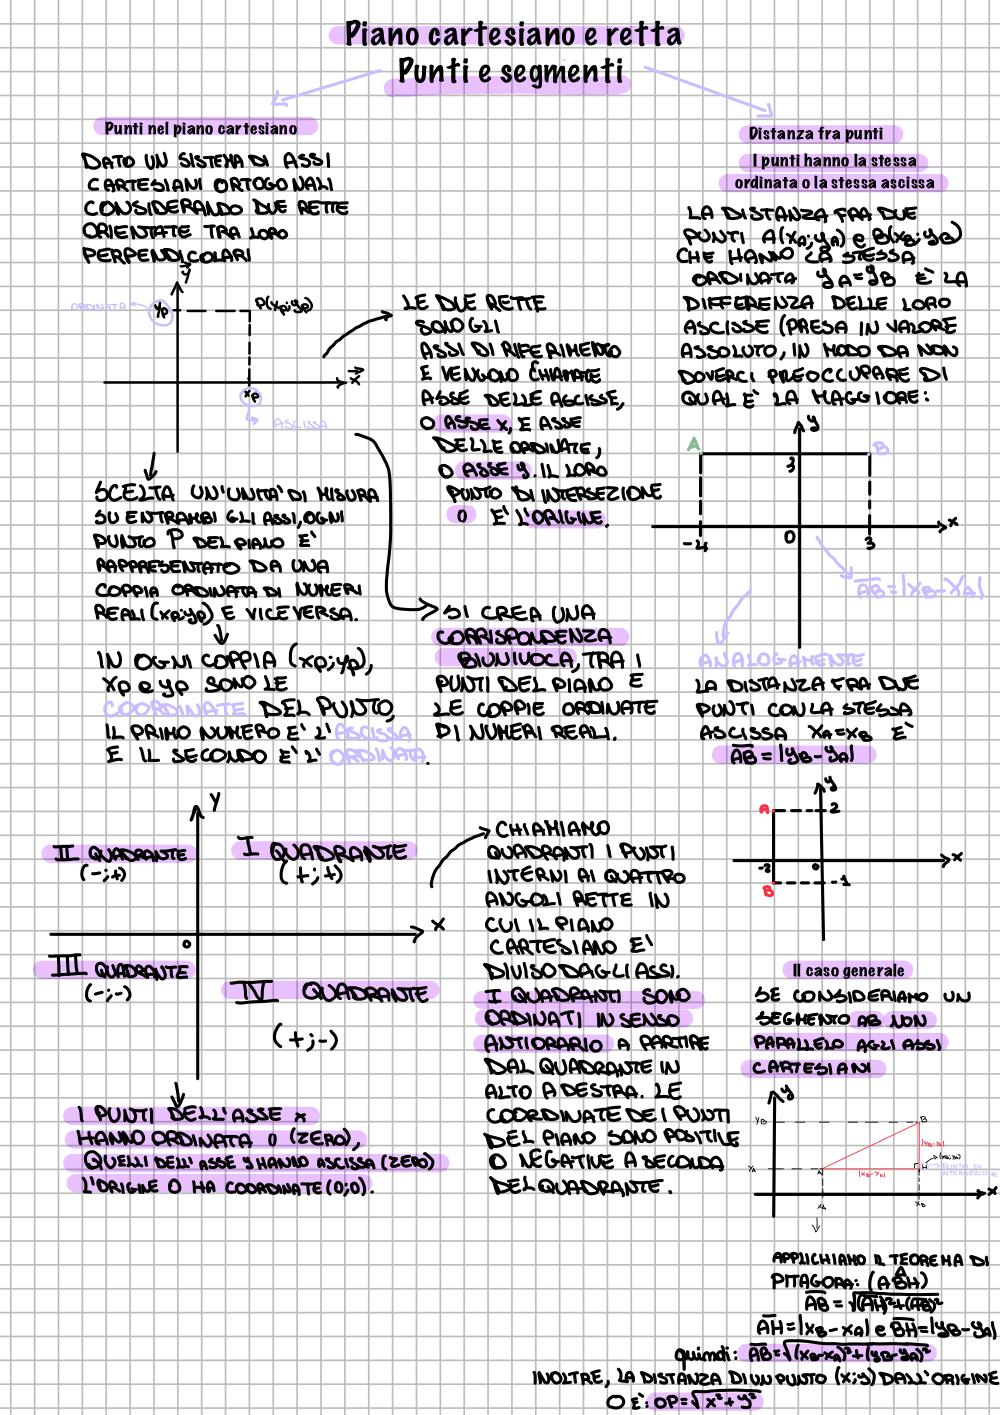 Piano cartesiano e retta
Punti e segmenti
Punti nel piano cartesiano
DATO UN SISTEMA DI ASSI
CARTESIANI ORTOGONALI
CONSIDERANDO DUE RETTE
ORIENTATE TRA LORO
PERPENDICOLARI
y
ORDINATA
yp
P(xp;yp)
x
xp
ASCISSA
LE DUE RETTE
SONO GLI
ASSI DI RIFERIMENTO
E VENGOLO CHIAMATE
ASSE DELLE ASCISSE,
O ASSE X, E ASSE
DELLE ORDINATE,
O ASSE Y. IL LORO
PUNTO DI INTERSEZIONE
O E' L'ORIGINE.
SCELTA UN'UNITA' DI MISURA
SU ENTRAMBI GLI ASSI, OGNI
PUNTO P DEL PIANO E'
RAPPRESENTATO DA UNA
COPPIA ORDINATA DI NUMERI
REALI (xp;yp) E VICEVERSA.
IN OGNI COPPIA (xp;yp),
xp e yp SONO LE
COORDINATE DEL PUNTO,
IL PRIMO NUMERO E' L'ASCISSA
E IL SECONDO E' L'ORDINATA.
SI CREA UNA
CORRISPONDENZA
BIUNIVOCA, TRA I
PUNTI DEL PIANO E
LE COPPIE ORDINATE
DI NUMERI REALI.
Y
II QUADRANTE
(-;+)
I QUADRANTE
(+;+)
X
0
III QUADRANTE
(-;-)
IV QUADRANTE
(+;-)
I PUNTI DELL'ASSE x
HANNO ORDINATA 0 (ZERO),
QUELLI DELL'ASSE y HANNO ASCISSA (ZERO)
L'ORIGINE O HA COORDINATE (0;0).
CHIAMIAMO
QUADRANTI I PUNTI
INTERNI AI QUATTRO
ANGOLI RETTE IN
CUI IL PIANO
CARTESIANO E'
DIVISO DAGLI ASSI.
I QUADRANTI SONO
ORDINATI IN SENSO
ANTIORARIO A PARTIRE
DAL QUADRANTE IN
ALTO A DESTRA. LE
COORDINATE DEI PUNTI
DEL PIANO SONO POSITIVE
O NEGATIVE A SECONDA
DEL QUADRANTE.
Distanza fra punti
I punti hanno la stessa
ordinata o la stessa ascissa
LA DISTANZA FRA DUE
PUNTI A(xA;yA) e B(xB;yB)
CHE HANNO LA STESSA
ORDINATA yA=yB E' LA
DIFFERENZA DELLE LORO
ASCISSE (PRESA IN VALORE
ASSOLUTO, IN MODO DA NON
DOVERCI PREOCCUPARE DI
QUAL E' LA MAGGIORE:
y
A
B
3
x
-4
0
3
AB=|xB-xA|
ANALOGAMENTE
LA DISTANZA FRA DUE
PUNTI CON LA STESSA
ASCISSA xA=xB E'
AB=|yB-yA|
y
A
2
x
-2
0
B
-1
Il caso generale
SE CONSIDERIAMO UN
SEGMENTO AB NON
PARALLELO AGLI ASSI
CARTESIANI
y
yB
B
|yB-yA|
yA
A
H
PUNTO DI
INTERSEZIONE
|xB-xA|
x
xA
xB
APPLICHIAMO IL TEOREMA DI
PITAGORA: (ABH)
AB=√(AH)²+(AB)²
AH=|xB-xA| e BH=|yB-yA|
quindi: AB=√(xB-xA)²+(yB-yA)²
INOLTRE, LA DISTANZA DI UN PUNTO (x;y) DALL'ORIGINE
O E': OP=√x²+y²